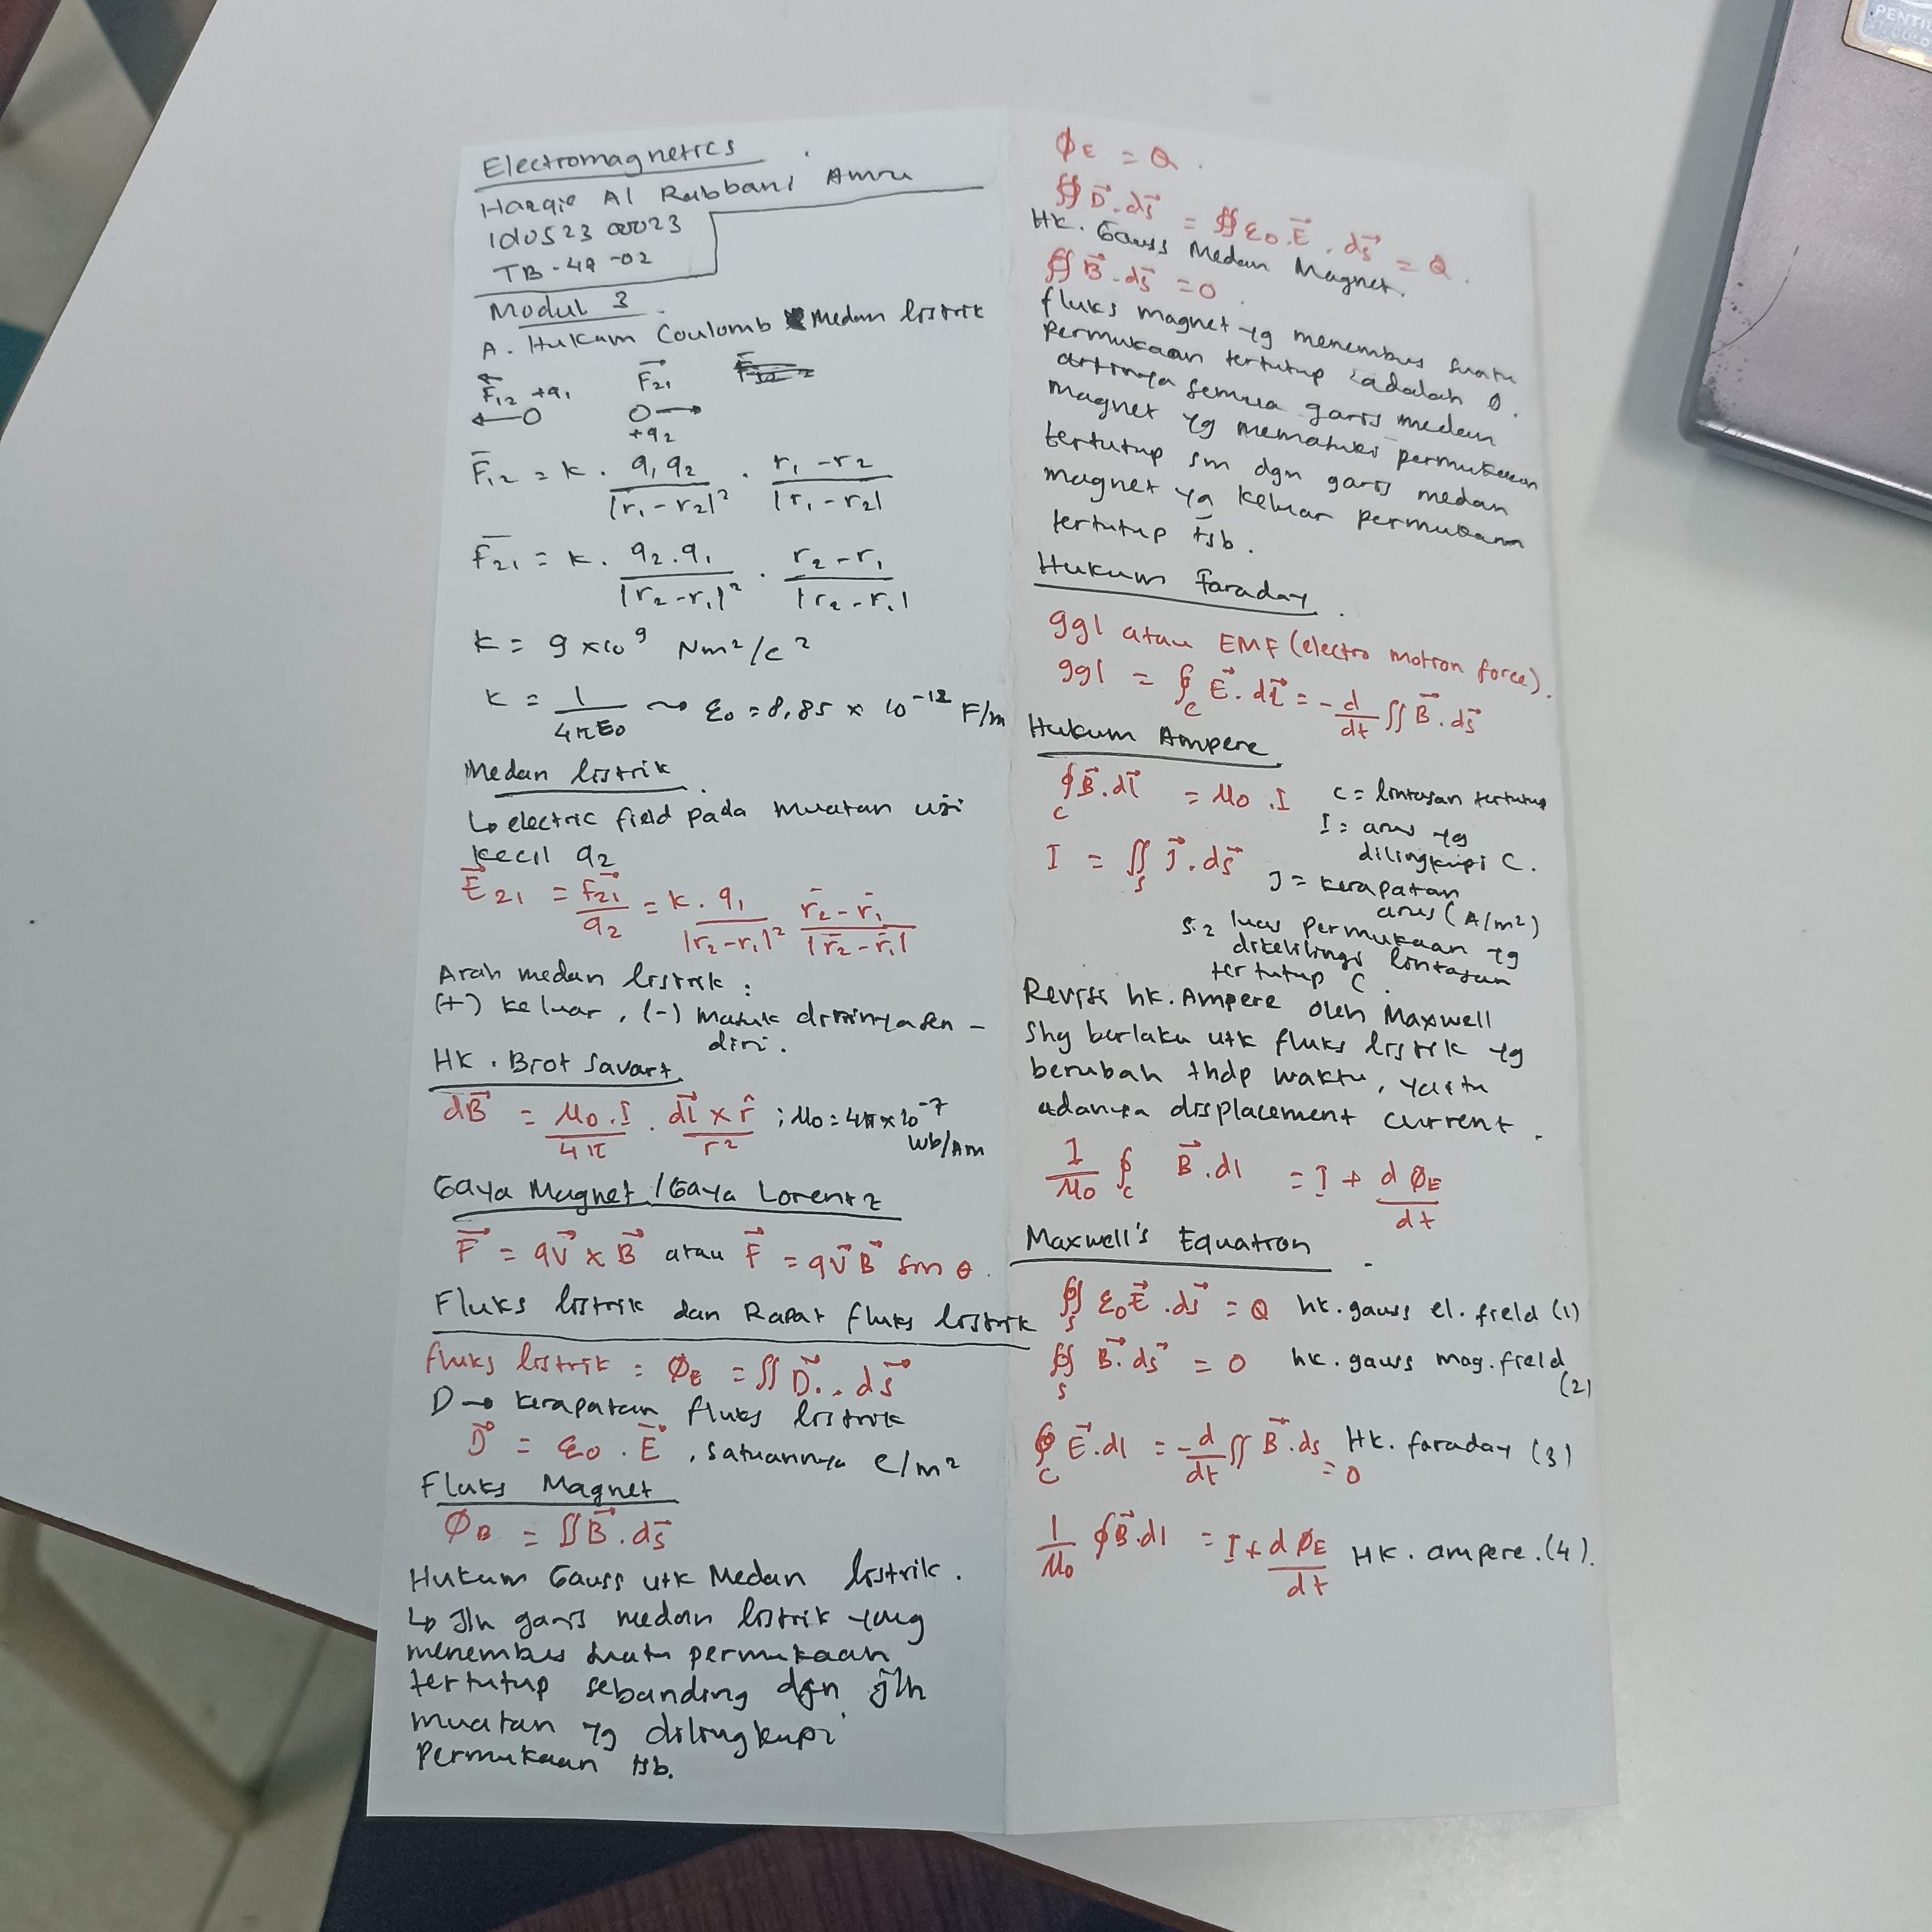 Electromagnetics
Hazqie Al Rabbani Amru
TB-49-02
Modul 3
A. Hukum Coulomb Medan listrik
F₁₂ +q₁ F₂₁
+q₂
F₁₂ = k . q₁q₂/|r₁-r₂|² . r₁-r₂/|r₁-r₂|
F₂₁ = k . q₂.q₁/|r₂-r₁|² . r₂-r₁/|r₂-r₁|
k = 9 x 10⁹ Nm²/c²
k = 1/4πε₀ ~> ε₀ = 8,85 x 10⁻¹² F/m
Medan listrik
↳ electric field pada muatan uji
kecil q₂
E⃗₂₁ = F₂₁/q₂ = k . q₁/|r₂-r₁|² r̄₂-r̄₁/|r̄₂-r̄₁|
Arah medan listrik :
(+) keluar, (-) masuk
diri.
Hk. Biot Savart
dB⃗ = μ₀.I/4π . dl⃗ x r̂/r² ; μ₀ = 4π x 10⁻⁷
Wb/Am
Gaya Magnet / Gaya Lorentz
F⃗ = qv⃗ x B⃗ atau F⃗ = qv⃗B⃗ sin θ.
Fluks listrik dan Rapat fluks listrik
fluks listrik : Φ_E = ∬D⃗ . ds⃗
D → kerapatan fluks listrik
D⃗ = ε₀ . E⃗, satuannya c/m²
Fluks Magnet
Φ_B = ∬B⃗.ds⃗
Hukum Gauss utk Medan listrik.
↳ Jlh garis medan listrik yang
menembus suatu permukaan
tertutup sebanding dgn jlh
muatan yg dilingkupi
permukaan tsb.
Φ_E = Q.
∯D⃗.ds⃗ = ∯ε₀.E⃗.ds⃗ = Q.
Hk. Gauss Medan Magnet.
∯B⃗.ds⃗ = 0.
fluks magnet yg menembus suatu
permukaan tertutup adalah 0.
artinya semua garis medan
magnet yg memasuki permukaan
tertutup sm dgn garis medan
magnet yg keluar permukaan
tertutup tsb.
Hukum Faraday
ggl atau EMF (electro motion force).
ggl = ∮_C E⃗.dl⃗ = -d/dt ∬B⃗.ds⃗
Hukum Ampere
∮_C B⃗.dl⃗ = μ₀.I C = lintasan tertutup
I = arus yg
dilingkupi C.
I = ∬_S J⃗.ds⃗ J = kerapatan
arus (A/m²)
S = luas permukaan yg
dikelilingi lintasan
tertutup C.
Revisi hk. Ampere oleh Maxwell
Shg berlaku utk fluks listrik yg
berubah thdp waktu, yaitu
adanya displacement current.
1/μ₀ ∮_C B⃗.dl = I + dΦ_E/dt
Maxwell's Equation
∯_S ε₀E⃗.ds⃗ = Q hk. gauss el. field (1)
∯_S B⃗.ds⃗ = 0 hk. gauss mag. field
(2)
∮_C E⃗.dl = -d/dt ∬B⃗.ds = 0 Hk. faraday (3)
1/μ₀ ∮B⃗.dl = I + dΦ_E/dt Hk. ampere. (4).